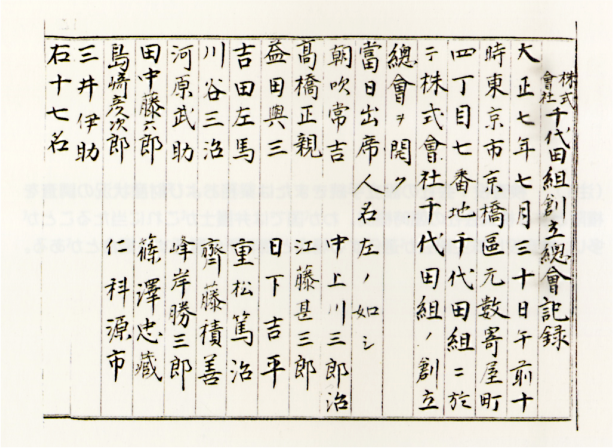 株式會社千代田組創立總會記録
大正七年七月三十日午前十
時東京市京橋區元數寄屋町
四丁目七番地千代田組ニ於
テ株式會社千代田組ノ創立
總會ヲ開ク
當日出席人名左ノ如シ
朝吹常吉 中上川三郎治
高橋正親 江藤甚三郎
益田與三 日下吉平
吉田左馬 重松篤治
川谷三治 齊藤積善
河原武助 峰岸勝三郎
田中藤六郎 篠澤忠藏
島崎彦次郎 仁科源市
三井伊助
右十七名